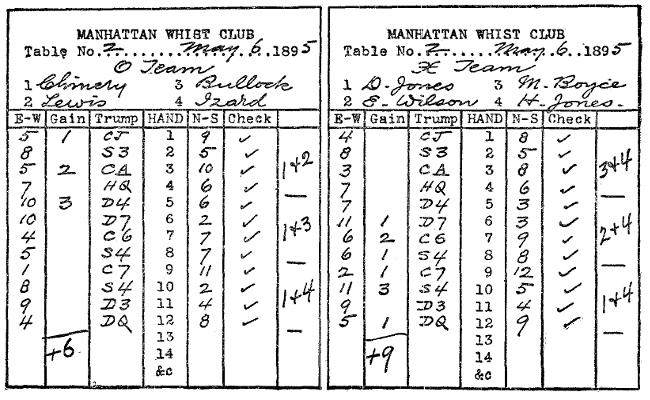 MANHATTAN WHIST CLUB
Table No. 2 ........ May 6 .. 1895
O Team
1 Chinery 3 Bullock
2 Lewis 4 Izard
E-W Gain Trump HAND N-S Check
5 1 CJ 1 9 ✓
8 S3 2 5 ✓
5 2 CA 3 10 ✓ 1+2
7 HQ 4 6 ✓ —
10 3 D4 5 6 ✓
10 D7 6 2 ✓
4 C6 7 7 ✓ 1+3
5 S4 8 7 ✓ —
1 C7 9 11 ✓
8 S4 10 2 ✓ 1+4
9 D3 11 4 ✓
4 DQ 12 8 ✓ —
13
+6 14
&c
MANHATTAN WHIST CLUB
Table No. 2 ........ May 6 .. 1895
X Team
1 D. Jones 3 M. Boyce
2 E. Wilson 4 H. Jones.
E-W Gain Trump HAND N-S Check
4 CJ 1 8 ✓
8 S3 2 5 ✓
3 CA 3 8 ✓ 3+4
7 HQ 4 6 ✓
7 D4 5 3 ✓ —
11 1 D7 6 3 ✓
6 2 C6 7 9 ✓ 2+4
6 1 S4 8 8 ✓ —
2 1 C7 9 12 ✓
11 3 S4 10 5 ✓ 1+4
9 D3 11 4 ✓
5 1 DQ 12 9 ✓ —
13
+9 14
&c